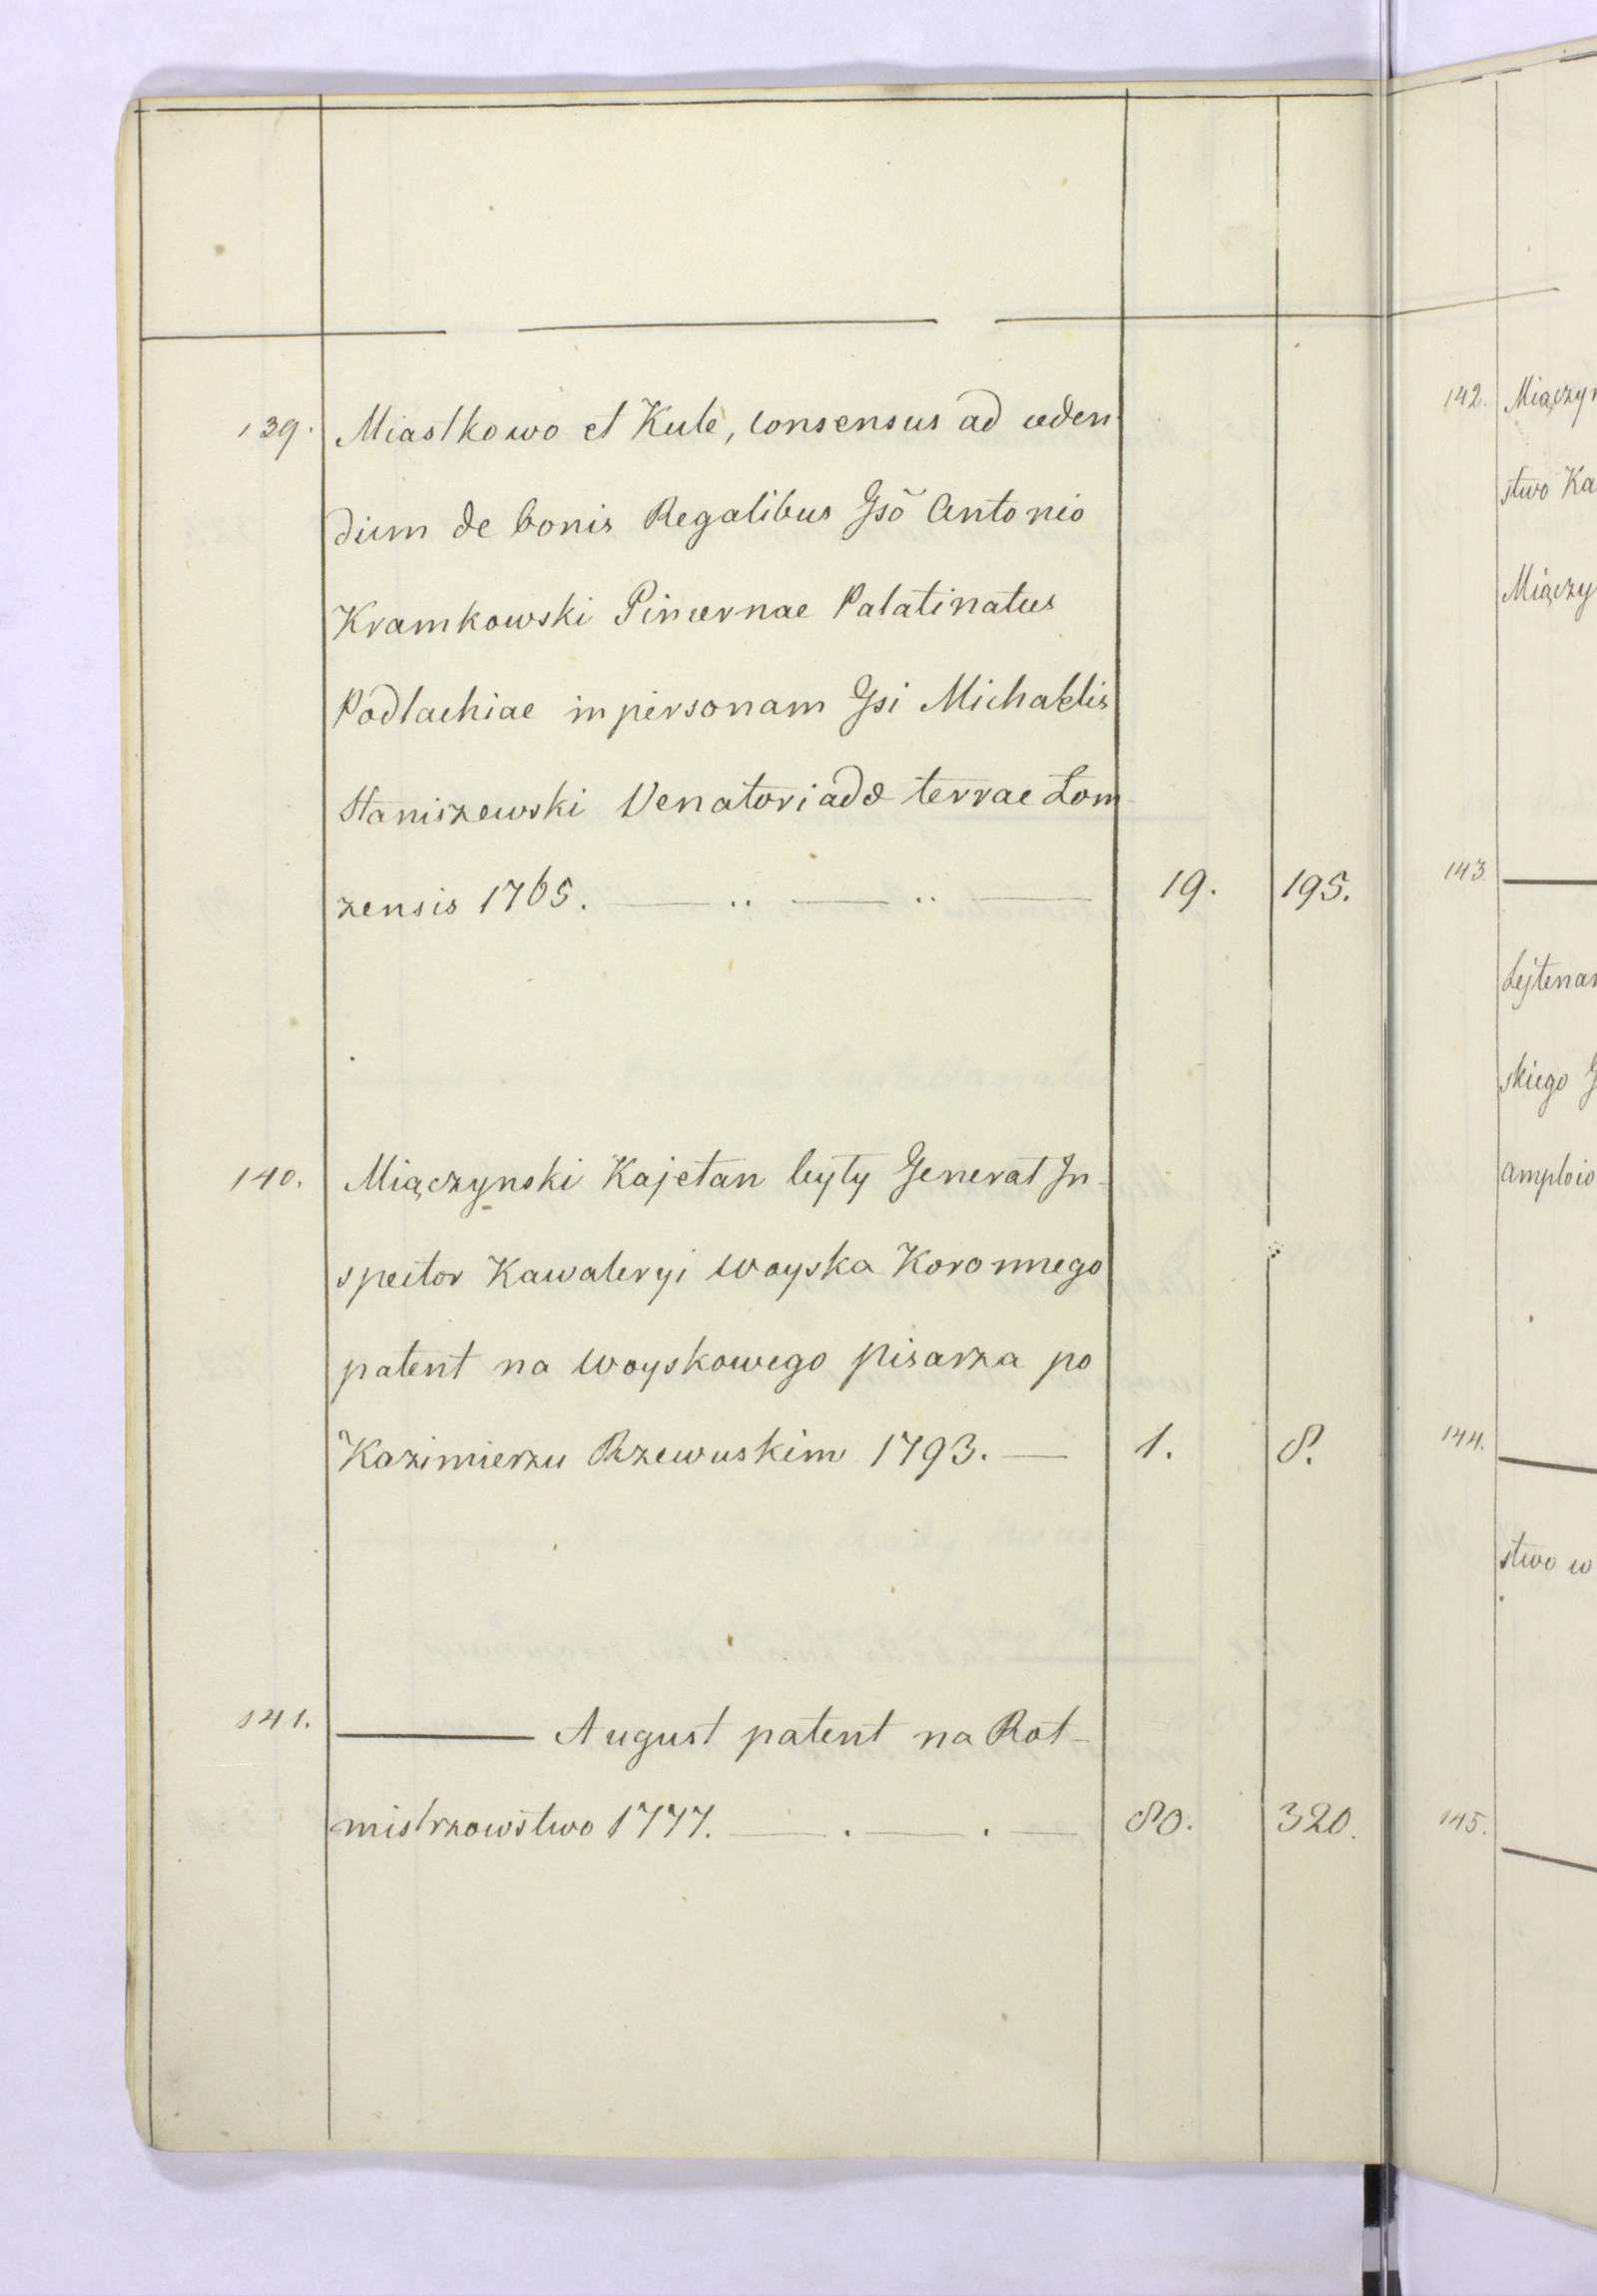 139. Miastkowo et Kule, consensus ad ceden-
dum de bonis Regalibus Gsō Antonio
Kramkowski Pincernae Palatinatus
Podlachiae in personam Gsi Michaelis
Staniszewski Venatoriadae terrae Łom-
zensis 1765. 19. 195.
140. Miączynski Kajetan były Generał In-
spector Kawaleryi Woyska Koronnego
patent na Woyskowego pisarza po
Kazimierzu Rzewuskim 1793. 1. 8.
141. ——— August patent na Rot-
mistrzowstwo 1777. 80. 320.
142. Miączyn
stwo Ka
Miączy
143. ———
Lejtenan
skiego G
amploio
144. ———
stwo w
145. ———